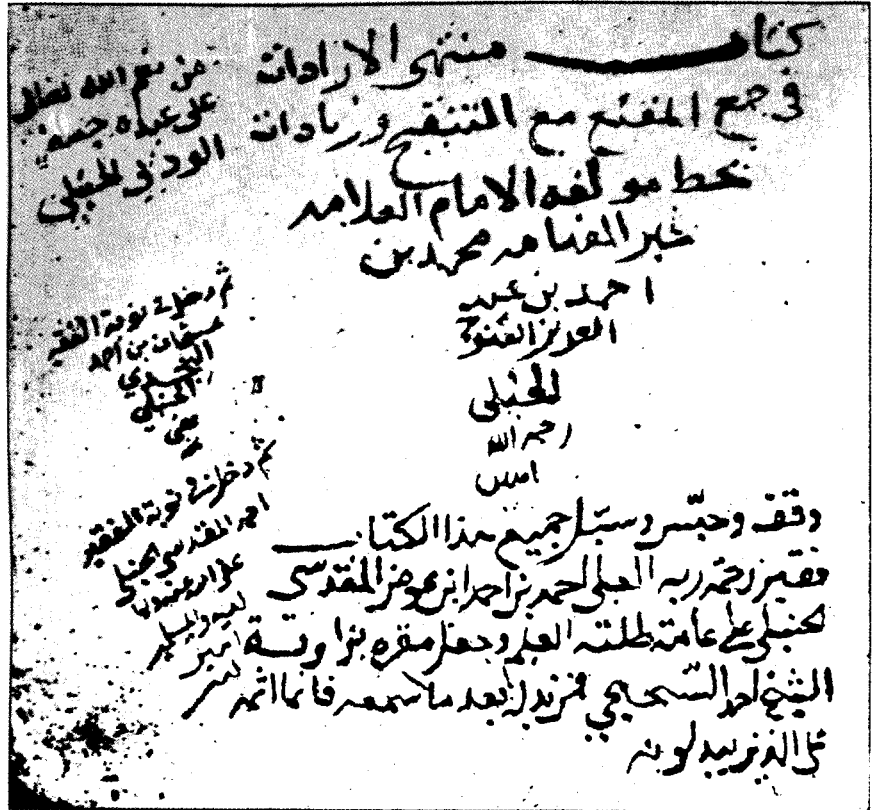 كتاب منتهى الارادات
في جمع المقنع مع التنقيح وزيادات
بخط مولفه الامام العلامه
محمد بن
احمد بن عبد
العزيز الفتوحي
الحنبلي
رحمه الله
امين
من نعم الله تعالى
على عبده
الحنبلي
ثم دخل في نوبة الفقير
عثمان بن احمد
النجدي
الحنبلي
عفي
عنه
ثم دخل في نوبة الفقير
احمد المقدسي الحنبلي
غفر الله له ولوالديه
وقف وحبّس وسبّل جميع هذا الكتاب
فقير رحمة ربه العلي احمد بن احمد ابن عوض المقدسي
الحنبلي على عامة طلبة العلم وجعل مقره
الشيخ احمد فمن بدله بعد ما سمعه فانما اثمه
على الذين يبدلونه